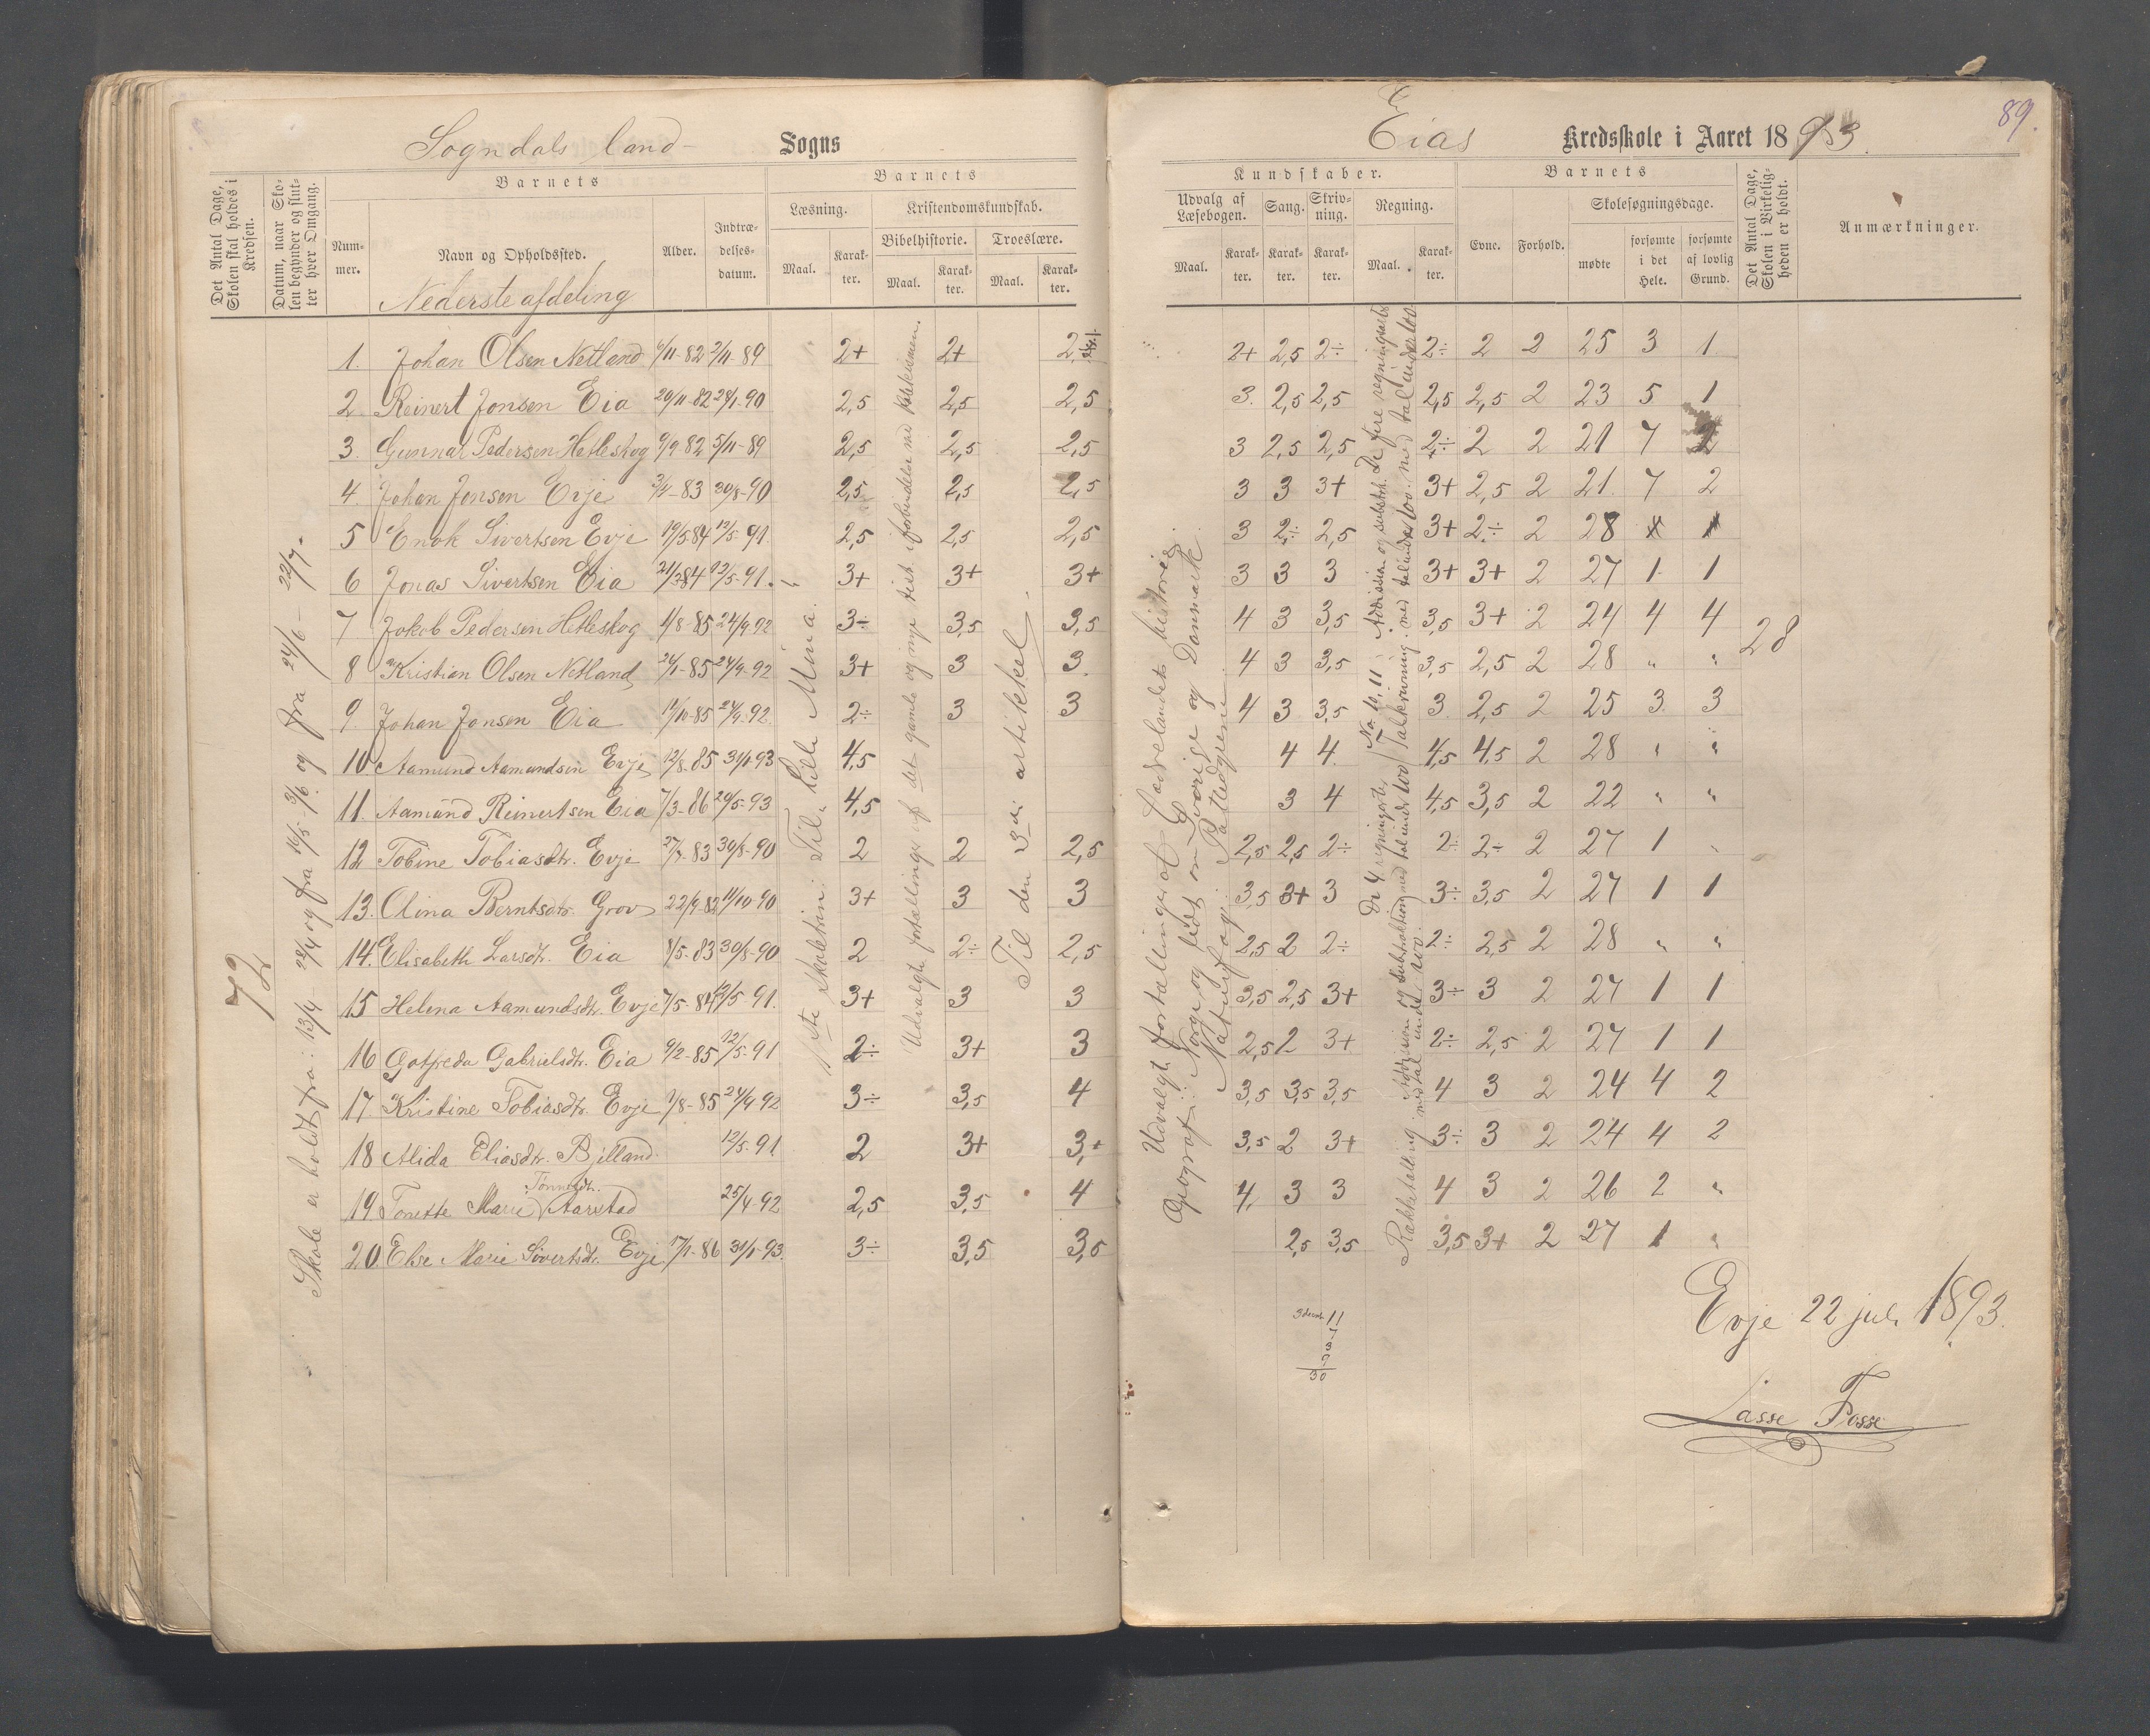 89.
Sogndals land Sogns
Eias Kredsskole i Aaret 1893.
Det Antal Dage, Skolen skal holdes i Kredsen.
Datum, naar Skolen begynder og slutter hver Omgang.
Barnets
Nummer.
Navn og Opholdssted.
Nederste afdeling
Alder.
Indtrædelsesdatum.
Barnets
Læsning.
Maal.
Karakter.
Kristendomskundskab.
Bibelhistorie.
Maal.
Karakter.
Troeslære.
Maal.
Karakter.
Kundskaber.
Udvalg af Læsebogen.
Maal.
Karakter.
Sang.
Karakter.
Skrivning.
Karakter.
Regning.
Maal.
Karakter.
Barnets
Evne.
Forhold.
Skolesøgningsdage.
mødte
forsømte i det Hele.
forsømte af lovlig Grund.
Det Antal Dage, Skolen i Virkeligheden er holdt.
Anmærkninger.
72
Skole er holdt fra: 13/4 - 28/4 og fra 16/5 - 3/6. og fra 24/6 - 22/7.
1ste skoletrin: Til "Lille Mina."
Udvalgte fortællinger af det gamle og nye test. i forbindelse med katekismen.
Til den 3die artikkel.
Udvalgte fortællinger af Fædrelandets historie.
Geografi: Norge og lidt om Sverige og Danmark.
Naturfag: Pattedyrene.
28
1. Johan Olsen Netland 6/11-82 2/11-89 2+ 2+ 2+ 2,5 2÷ 2÷ 2 2 25 3 1
2 Reinert Jonsen Eia 20/11-82 28/1-90 2,5 2,5 2,5 3. 2,5 2,5 2,5 2,5 2 23 5 1
3. Gunnar Pedersen Hetleskog 9/9-82 5/11-89 2,5 2,5 2,5 3 2,5 2,5 2÷ 2 2 21 7 2
4 Johan Jonsen Evje 3/4-83 30/8-90 2,5 2,5 2,5 3 3 3+ 3+ 2,5 2 21. 7 2
5 Enok Sivertsen Evje 19/5-84 12/5-91. 2,5 2,5 2,5 3 2÷ 2,5 3+ 2÷ 2 28
6 Jonas Sivertsen Eia 21/3-84 12/5-91. 3+ 3+ 3+ 3 3 3 3+ 3+ 2 27 1 1
7 Jakob Pedersen Hetleskog 4/8-85 24/9-92 3÷ 3,5 3,5 4 3 3,5 3,5 3+ 2 24 4 4
8 Kristian Olsen Netland 24/1-85 24/9-92 3+ 3 3. 4 3 3,5 3,5 2,5 2 28 " "
9. Johan Jonsen Eia 14/10-85 24/9-92. 2÷ 3 3 4 3 3,5 3. 2,5 2 25 3 3
10 Aamund Aamundsen Evje 12/8-85 31/1-93 4,5 4 4 4,5 4,5 2 28 " "
11. Aamund Reinertsen Eia 7/3-86 20/5-93 4,5 3 4 4,5 3,5 2 22 " "
12 Tobine Tobiasdtr. Evje 27/7-83 30/8-90 2 2 2,5 2,5 2,5 2÷ 2÷ 2÷ 2 27 1 "
13. Olina Berntsdtr. Grov 22/9-82 11/10-90 3+ 3 3 3,5 3+ 3 3÷ 3,5 2 27 1 1
14. Elisabeth Larsdtr. Eia 8/5-83 30/8-90 2 2÷ 2,5 2,5 2 2÷ 2÷ 2,5 2 28 " "
15 Helena Aamundsdtr. Evje 7/5-84 12/5-91. 3+ 3 3 3,5 2,5 3+ 3÷ 3 2 27 1 1
16 Gotfreda Gabrielsdtr. Eia 9/2-85 12/5-91 2÷ 3+ 3 2,5 2 3+ 2÷ 2,5 2 27 1 1
17 Kristine Tobiasdtr. Evje 1/8-85 24/9-92 3÷ 3,5 4 3,5 3,5 3,5 4 3 2 24 4 2
18 Alida Eliasdtr. Bjelland. 12/5-91 2 3+ 3,+ 3,5 2 3+ 3÷ 3 2 24 4 2
19 Tonette Marie Tønnesdtr. Aarstad 25/4-92 2,5 3,5 4 4. 3 3 4 3 2 26 2 "
20. Else Marie Sivertsdtr. Evje 17/1-86 31/1-93. 3÷ 3,5 3,5 2,5 3,5 3,5 3+ 2 27 1 "
11
7
3
9
30
Evje 22 juli 1893.
Lasse Fosse